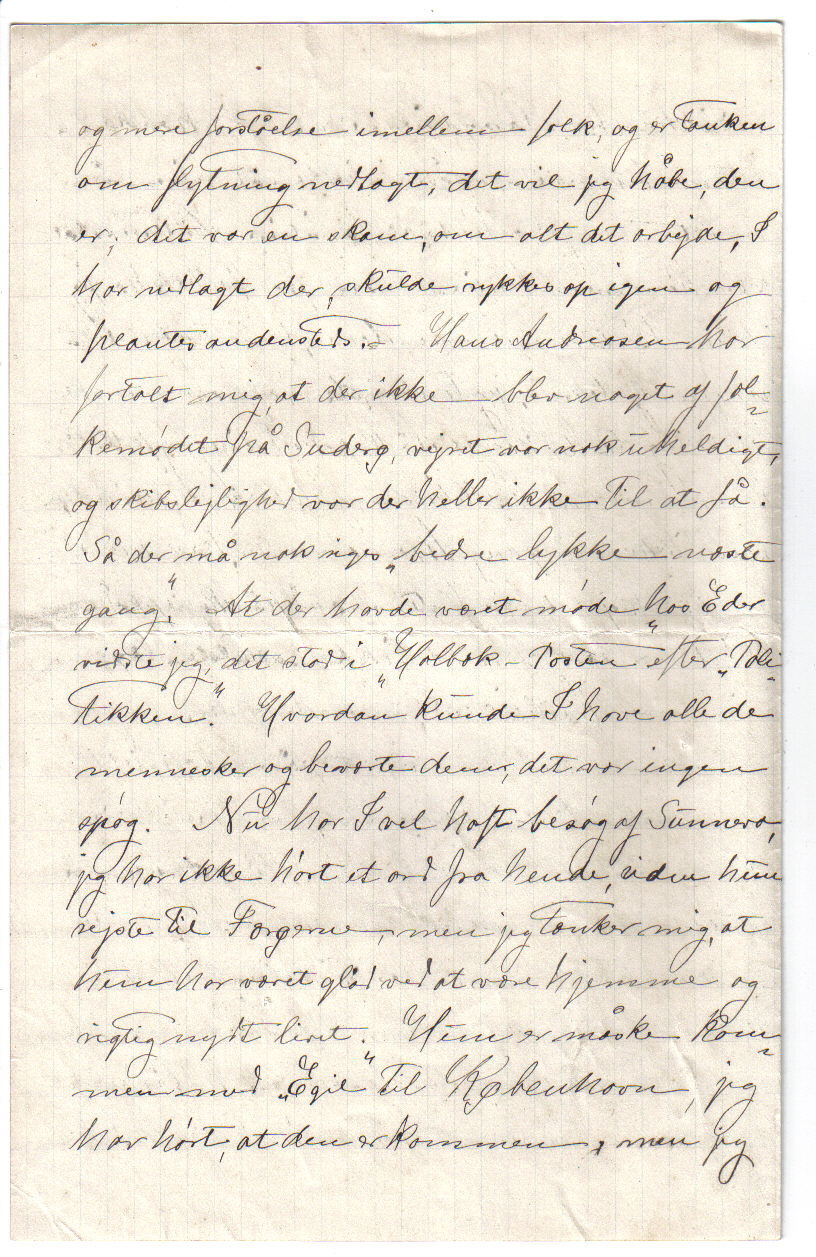 og mere forståelse imellem folk, og er tanken
om flytning nedlagt, det vil jeg håbe, den
er; det var en skam, om alt det arbejde, I
har nedlagt der, skulde rykkes op igen og
plantes andensteds. – Hans Andreasen har
fortalt mig, at der ikke blev noget af fol-
kemødet på Suderø, vejret var nok uheldigt,
og skibslejlighed var der heller ikke til at få.
Så der må nok siges „bedre lykke næste
gang“. At der havde været møde hos Eder
vidste jeg, det stod i „Holbæk-Posten“ efter „Poli-
tikken.“ Hvordan kunde I have alle de
mennesker og beværte dem, det var ingen
spøg. Nu har I vel haft besøg af Sunneva,
jeg har ikke hørt et ord fra hende, siden hun
rejste til Færøerne, men jeg tænker mig, at
hun har været glad ved at være hjemme og
rigtig nydt livet. Hun er måske kom-
men med „Egil“ til København, jeg
har hørt, at den er kommen, men jeg